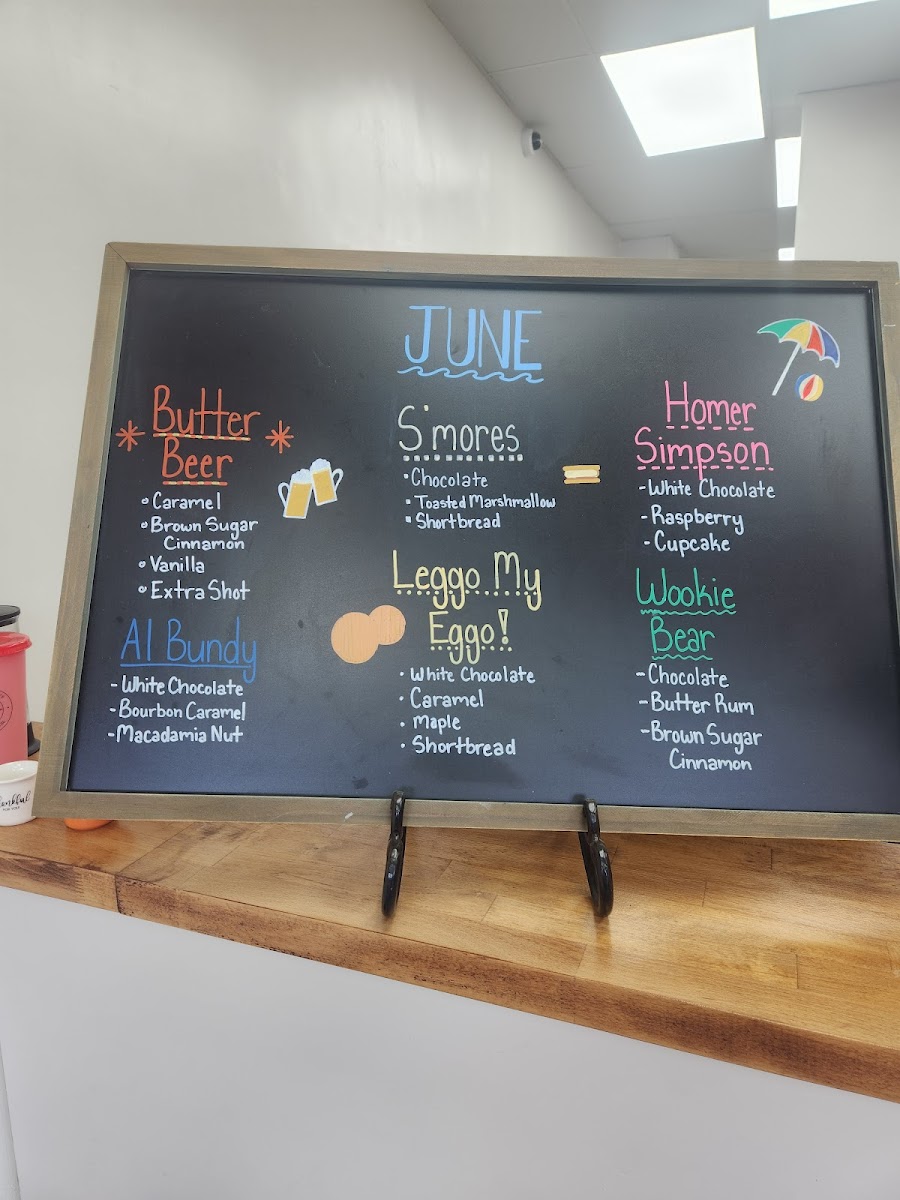 JUNE
Butter
Beer
• Caramel
• Brown Sugar
Cinnamon
• Vanilla
• Extra Shot
Al Bundy
- White Chocolate
- Bourbon Caramel
- Macadamia Nut
S'mores
• Chocolate
• Toasted Marshmallow
• Shortbread
Leggo My
Eggo!
• White Chocolate
• Caramel
• Maple
• Shortbread
Homer
Simpson
- White Chocolate
- Raspberry
- Cupcake
Wookie
Bear
- Chocolate
- Butter Rum
- Brown Sugar
Cinnamon